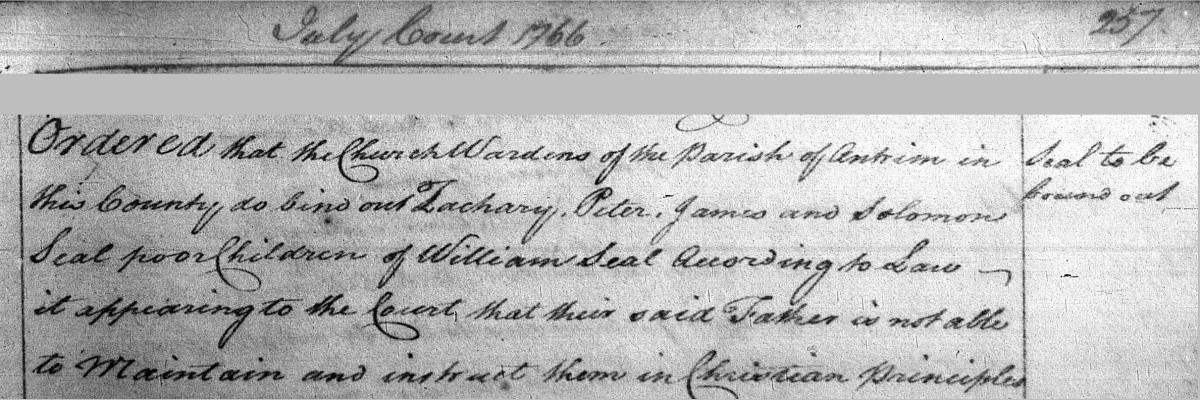 July Court 1766. 257.
Ordered that the Church Wardens of the Parish of Antrim in
this County do bind out Zachary, Peter, James and Solomon
Seal poor Children of William Seal According to Law
it appearing to the Court that their said Father is not able
to Maintain and instruct them in Christian Principles
Seal to be
bound out